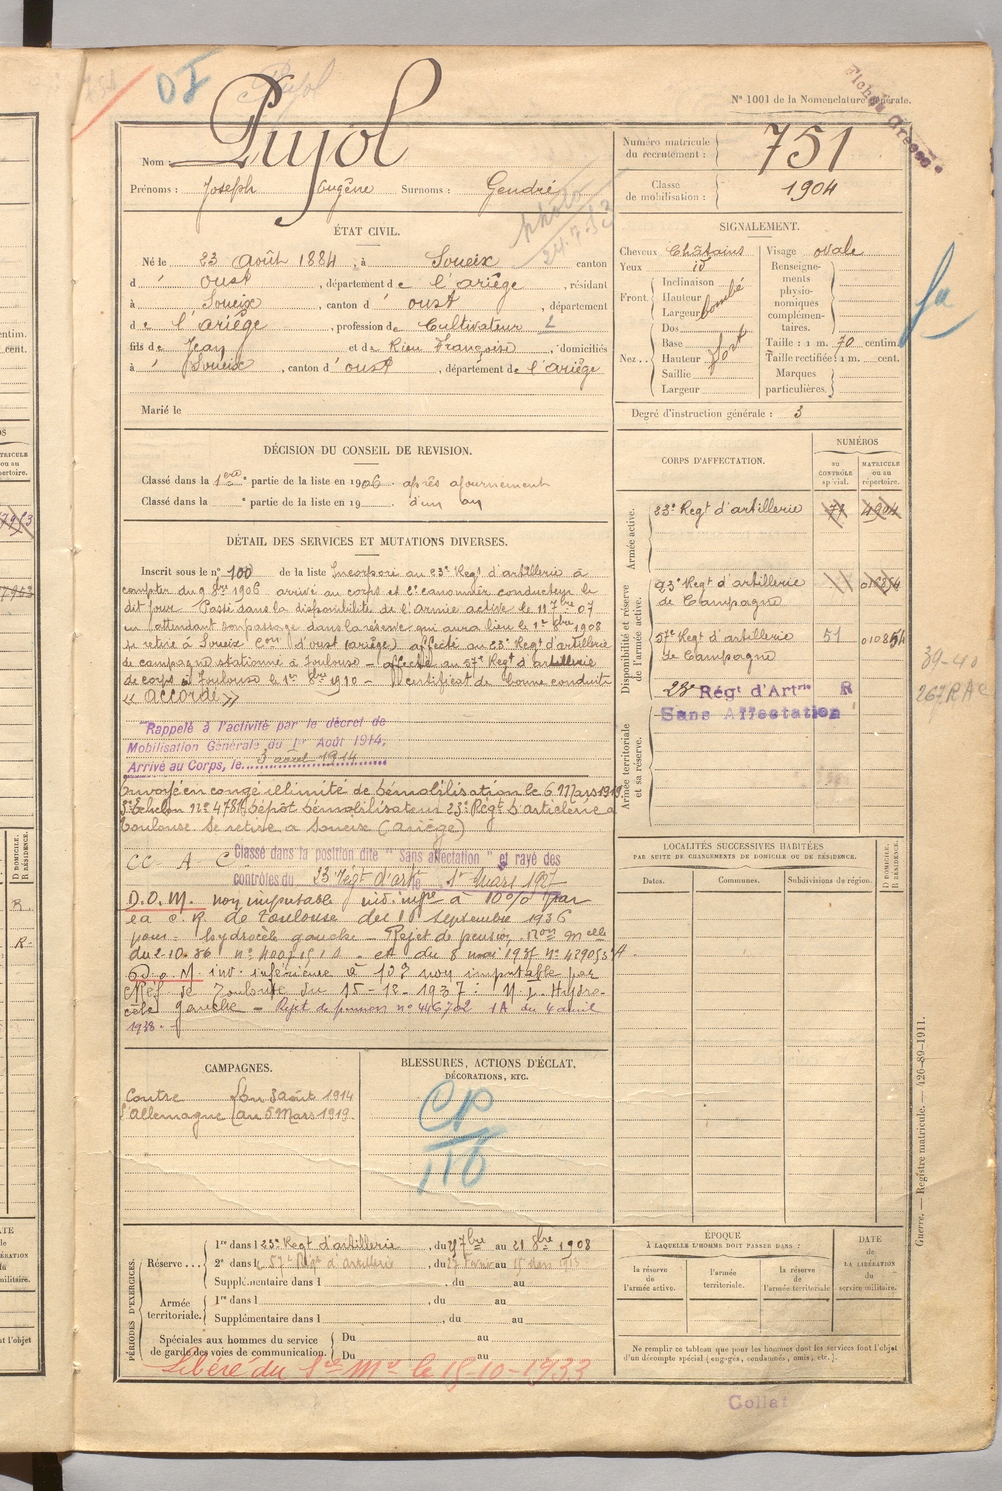 N° 1001 de la Nomenclature générale.
Nom : Pujol
Prénoms : Joseph Eugène Surnoms : Gendré
Numéro matricule du recrutement : 751
Classe de mobilisation : 1904
photo
ÉTAT CIVIL.
Né le 23 Août 1884, à Soueix canton
d' oust, département de l'ariège, résidant
à Soueix, canton d' oust, département
de l'ariège, profession de Cultivateur
fils de Jean et de Rieu Françoise, domiciliés
à Soueix, canton d' oust, département de l'ariège
Marié le
SIGNALEMENT.
Cheveux Châtains
Yeux id
Front. Inclinaison
Hauteur
Largeur bombé
Nez. Dos
Base
Hauteur fort
Saillie
Largeur
Visage ovale
Renseignements physionomiques complémentaires.
Taille : 1 m. 70 centim.
Taille rectifiée : 1 m. cent.
Marques particulières.
Degré d'instruction générale : 3
DÉCISION DU CONSEIL DE REVISION.
Classé dans la 1ère partie de la liste en 1906 après ajournement
Classé dans la partie de la liste en 19 d'un an
DÉTAIL DES SERVICES ET MUTATIONS DIVERSES.
Inscrit sous le n° 100 de la liste Incorporé au 23e Regt d'artillerie à
compter du 9 8bre 1906 arrivé au corps et 2e canonnier conducteur le
dit jour Passé dans la disponibilité de l'armée active le 11 7bre 07
en attendant son passage dans la réserve qui aura lieu le 1er 8bre 1908
se retire à Soueix Con d'oust (ariège) affecté au 23e Regt d'artillerie
de campagne stationné à Toulouse – affecté au 57e Regt d'artillerie
de corps à Toulouse le 1er 8bre 1910 – Certificat de bonne conduite
« ACCORDÉ »
Rappelé à l'activité par le décret de
Mobilisation Générale du 1er Août 1914,
Arrivé au Corps, le 3 aout 1914
Envoyé en congé illimité de Démobilisation le 6 Mars 1919
Echelon N° 4781 Dépôt Démobilisateur 23e Régt D'artillerie à
Toulouse Se retire à Soueix (Ariège)
Classé dans la position dite " Sans affectation " et rayé des
contrôles du 23 Regt d'artie 1er Mars 1927
D.O.M. non imputable inv. infre à 10% par
la C.R. de Toulouse du 18 septembre 1936
pour : hydrocèle gauche – Rejet de pension
inv. inférieure à 10% non imputable par
de Toulouse du 15-12-1937 : Hydro-
cèle gauche – Rejet de pension n° 446702 1A du 4 avril
1938.
CORPS D'AFFECTATION.
NUMÉROS
AU CONTRÔLE spécial.
MATRICULE ou au répertoire.
Armée active.
23e Regt d'artillerie 71 4904
Disponibilité et réserve de l'armée active.
23e Regt d'artillerie
de Campagne
57e Regt d'artillerie 51 010854
de Campagne
23e Régt d'Artie R
Sans Affectation
Armée territoriale et sa réserve.
39-40
267 RAC
LOCALITÉS SUCCESSIVES HABITÉES
PAR SUITE DE CHANGEMENTS DE DOMICILE OU DE RÉSIDENCE.
Dates.
Communes.
Subdivisions de région.
D DOMICILE.
R RÉSIDENCE.
CAMPAGNES.
Contre l'Allemagne
du 3 août 1914
au 5 Mars 1919.
BLESSURES, ACTIONS D'ÉCLAT,
DÉCORATIONS, ETC.
CP
116
PÉRIODES D'EXERCICES.
Réserve... 1re dans l 23e Regt d'artillerie, du 27 7bre au 21 8bre 1908
2e dans l 57e Regt d'artillerie, du
Supplémentaire dans l , du au
Armée territoriale. 1re dans l , du au
Supplémentaire dans l , du au
Spéciales aux hommes du service de garde des voies de communication. Du au
Du au
Libéré du Sce Mre le 15-10-1933
ÉPOQUE
À LAQUELLE L'HOMME DOIT PASSER DANS :
la réserve de l'armée active.
l'armée territoriale.
la réserve de l'armée territoriale
DATE de LA LIBÉRATION du service militaire.
Ne remplir ce tableau que pour les hommes dont les services font l'objet
d'un décompte spécial (engagés, condamnés, omis, etc.).
Guerre. — Registre matricule. — 426-89-1911.